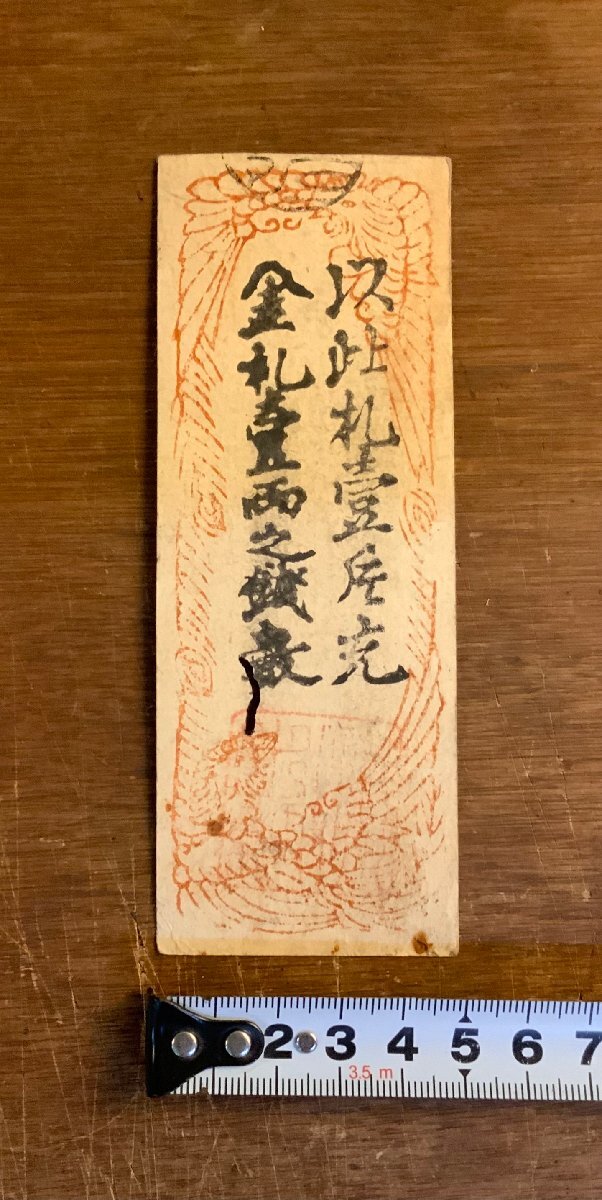 以此札壹匁充
金札壹両之錢數
2 3 4 5 6 7
3.5 m